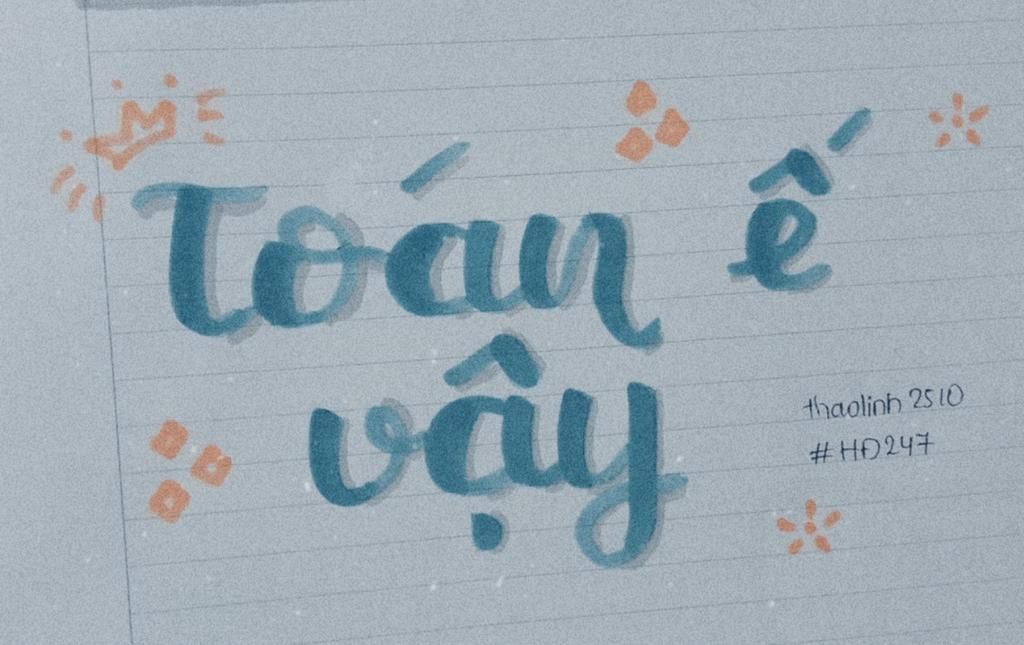 Toán ế
vậy
thaolinh 2510
#HĐ247